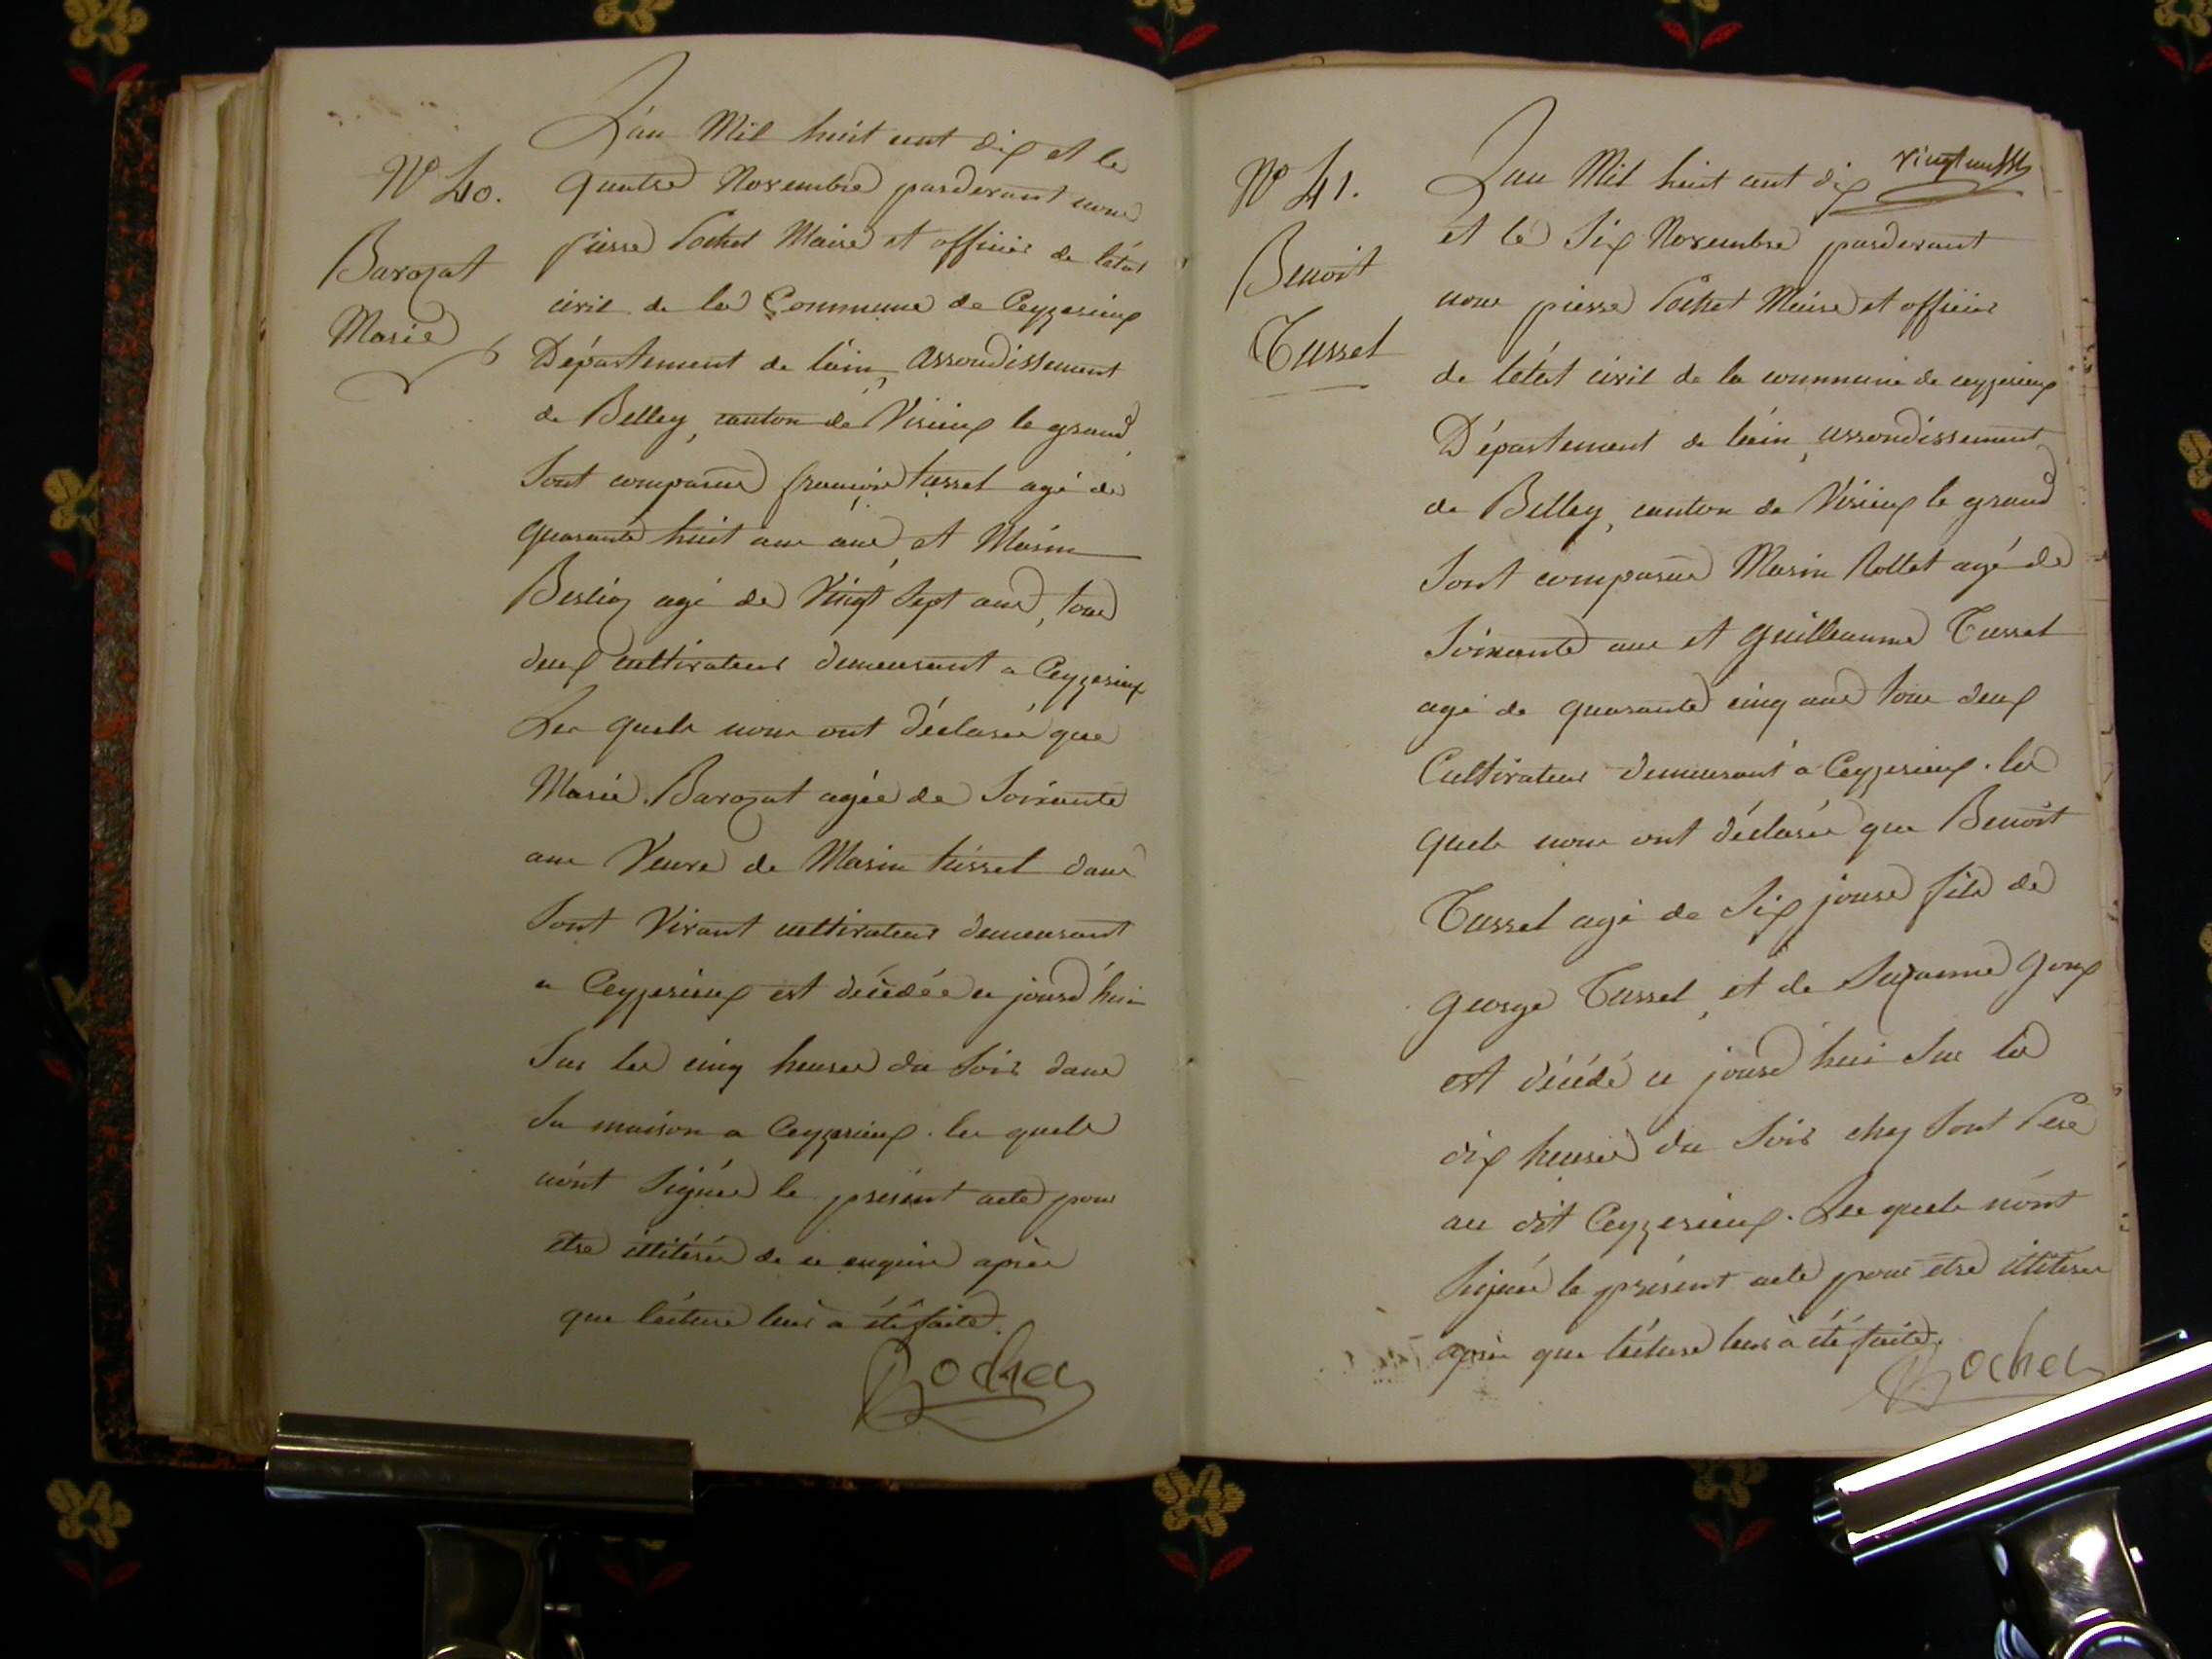 N° 40.
Barozat
Marie
L'an Mil huit cent dix et le
quatre Novembre pardevant nous
pierre Pochet Maire et officier de l'état
civil de la Commune de Ceyzerieux
Département de l'ain, arrondissement
de Belley, canton de Virieux le grand
Sont comparus françois tusset agé de
quarante huit ans et Marin
Berlioz agé de Vingt Sept ans, tous
deux cultivateurs demeurant a Ceyzerieux
Les quels nous ont déclarés que
Marie Barozat agée de Soixante
ans Veuve de Marin tusset dans
Sont Vivant cultivateur demeurant
a Ceyzerieux est décédée ce jourd'hui
Sur les cinq heures du Soir dans
Sa maison a Ceyzerieux. les quels
n'ont Signés le présent acte pour
etre ittitérés de ce enquis après
que lecture leur a été faite.
Pochet
N° 41.
Benoit
Tusset
vingt
L'an Mil huit cent dix
et le Six Novembre pardevant
nous pierre Pochet Maire et officier
de l'état civil de la commune de ceyzerieux
Département de l'ain, arrondissement
de Belley, canton de Virieux le grand
Sont comparus Marin Rollet agé de
Soixante ans et guilleaume Tusset
agé de quarante cinq ans tous deux
Cultivateurs demeurant a Ceyzerieux. les
quels nous ont déclarés que Benoit
Tusset agé de Six jours fils de
george Tusset, et de Suzanne goux
est décédé ce jourd'hui Sur les
dix heures du Soir chez Sont Pere
au dit Ceyzerieux. Les quels n'ont
Signés le présent acte pour etre ittiteres
après que lecture leur à été faite.
Pochet